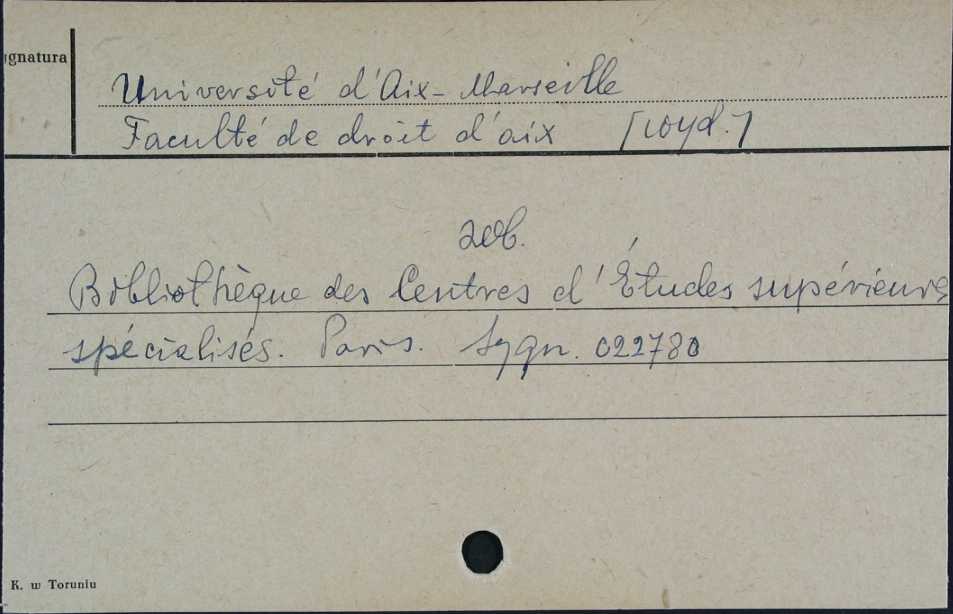 ygnatura
Université d'Aix-Marseille
Faculté de droit d'aix [wyd.]
zob.
Bibliothèque des Centres d'Études supérieurs
spécialisés. Paris. Sygn. 022780
K. w Toruniu